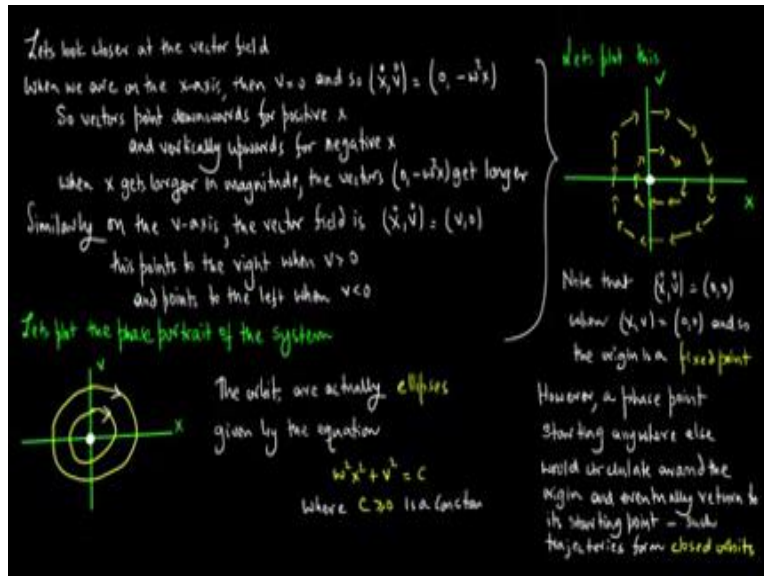 Lets look closer at the vector field
When we are on the x-axis, then v=0 and so (ẋ, v̇) = (0, -ω²x)
So vectors point downwards for positive x
and vertically upwards for negative x
when x gets larger in magnitude, the vectors (0, -ω²x) get longer
Similarly on the v-axis, the vector field is (ẋ, v̇) = (v, 0)
this points to the right when v>0
and points to the left when v<0
Lets plot the phase portrait of the system
v
x
The orbits are actually ellipses
given by the equation
ω²x² + v² = C
where C≥0 is a constan
Lets plot this
v
x
Note that (ẋ, v̇) = (0,0)
when (x, v) = (0,0) and so
the origin is a fixed point
However, a phase point
starting anywhere else
would circulate around the
origin and eventually return to
its starting point – such
trajectories form closed orbits